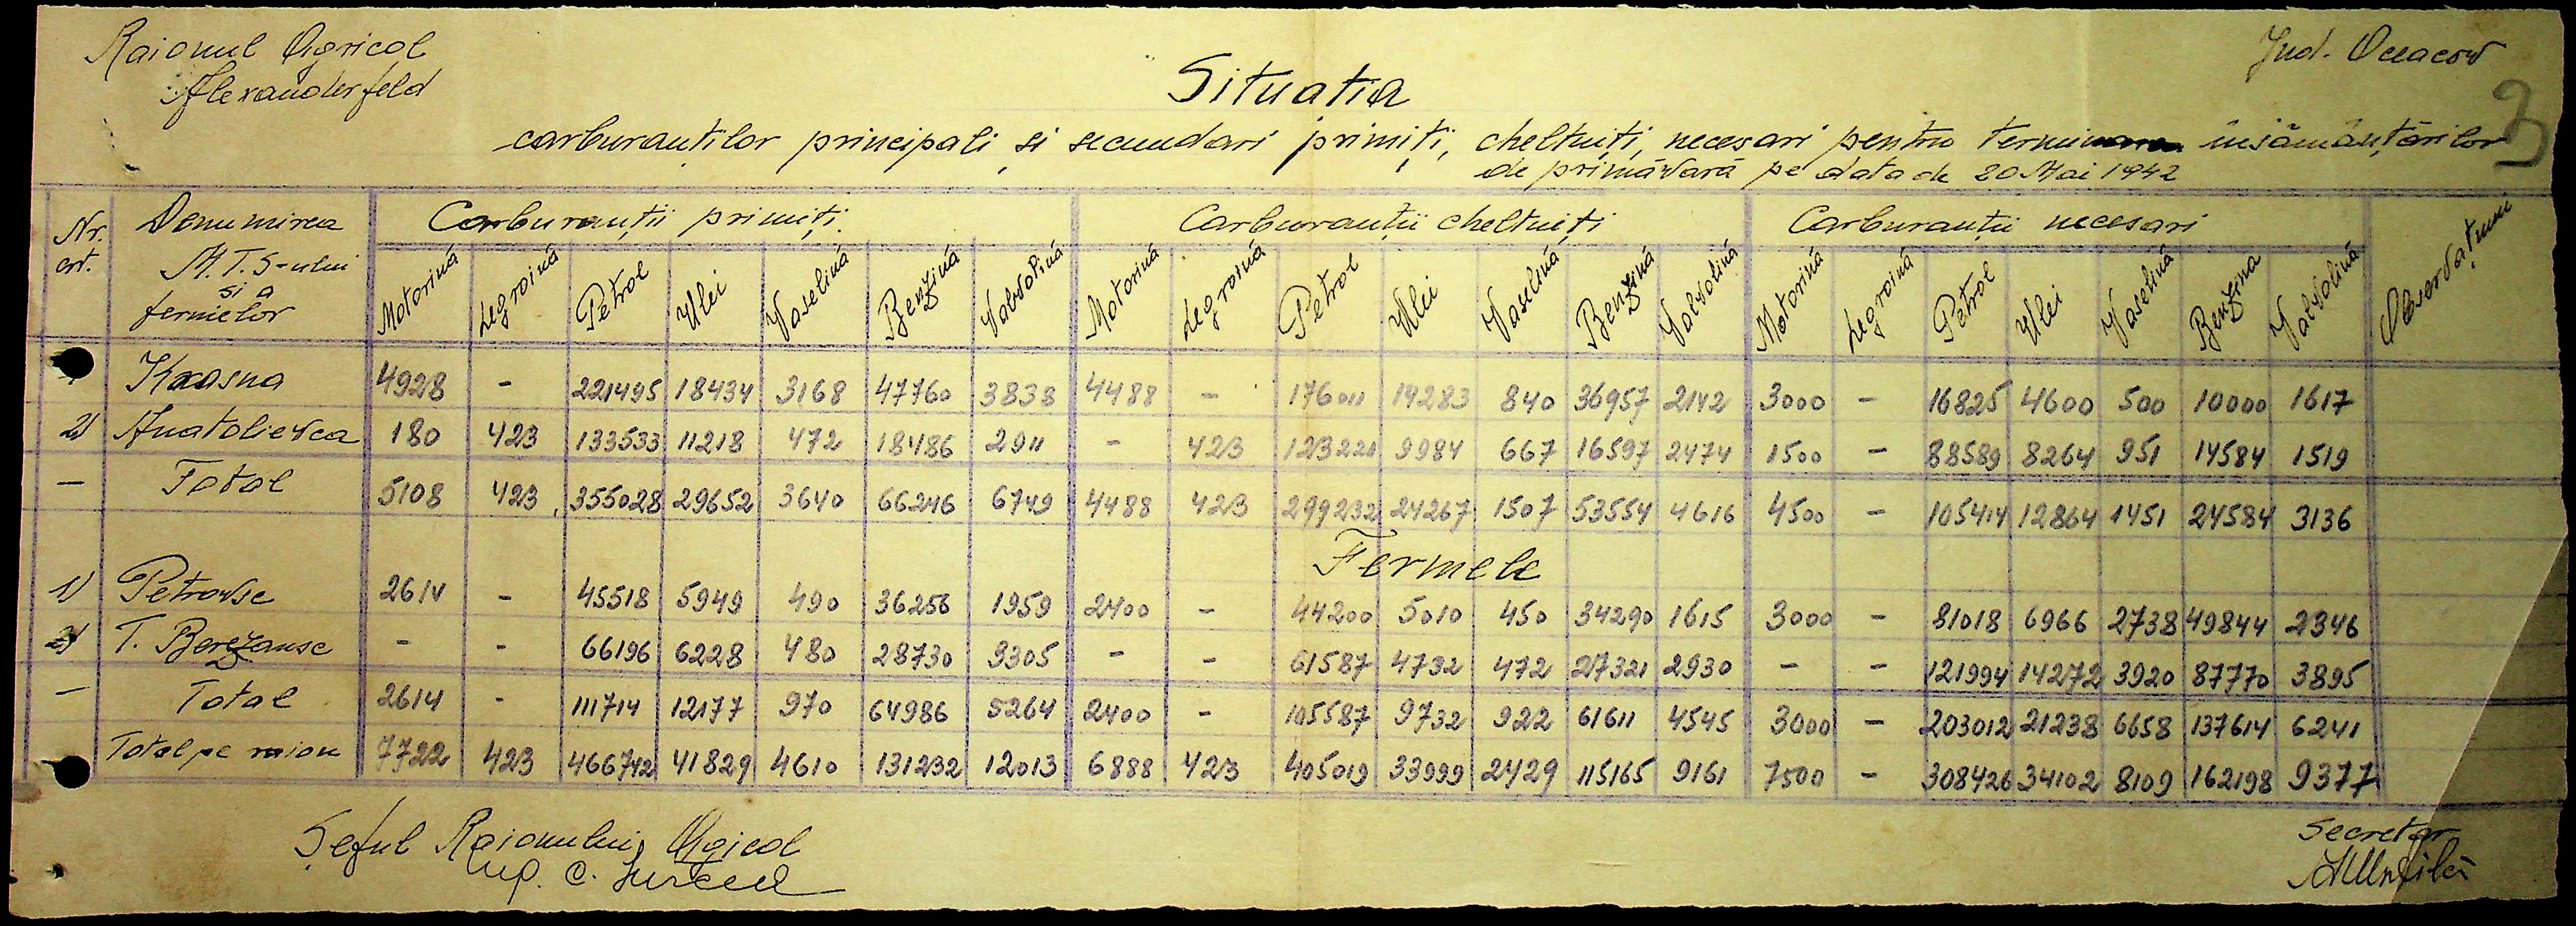 Raionul Agricol
Alexanderfeld
Jud. Oceacov
3
Situatia
carburanților principali și secundari primiți, cheltuiți, necesari pentru însămânțărilor
de primăvară pe data de 20 Mai 1942
Nr. crt. Denumirea M.T.S-ului si a fermelor Carburanții primiți. Carburanții cheltuiți Carburanții necesari Observațiuni
Motorină Legroină Petrol Ulei Vaselină Benzină Valvolină Motorină Legroină Petrol Ulei Vaselină Benzină Valvolină Motorină Legroină Petrol Ulei Vaselină Benzina Valvolină
Krasna 4928 - 221495 18434 3168 47760 3838 4488 - 176011 14283 840 36957 2142 3000 - 16825 4600 500 10000 1617
2) Anatolievca 180 423 133533 11218 472 18486 2911 - 423 123221 9984 667 16597 2474 1500 - 88589 8264 951 14584 1519
- Total 5108 423 355028 29652 3640 66246 6749 4488 423 299232 24267 1507 53554 4616 4500 - 105414 12864 1451 24584 3136
Fermele
1) Petrovsc 2614 - 45518 5949 490 36256 1959 2400 - 44200 5010 450 34290 1615 3000 - 81018 6966 2738 49844 2346
2) T. Berezansc - - 66196 6228 480 28730 3305 - - 61587 4732 472 27321 2930 - - 121994 14272 3920 87770 3895
- Total 2614 - 111714 12177 970 64986 5264 2400 - 105587 9732 922 61611 4545 3000 - 203012 21238 6658 137614 6241
Total pe raion 7722 423 466742 41829 4610 131232 12013 6888 423 405019 33999 2429 115165 9161 7500 - 308426 34102 8109 162198 9377
Șeful Raionului Agicol
Ing. C.
Secretar